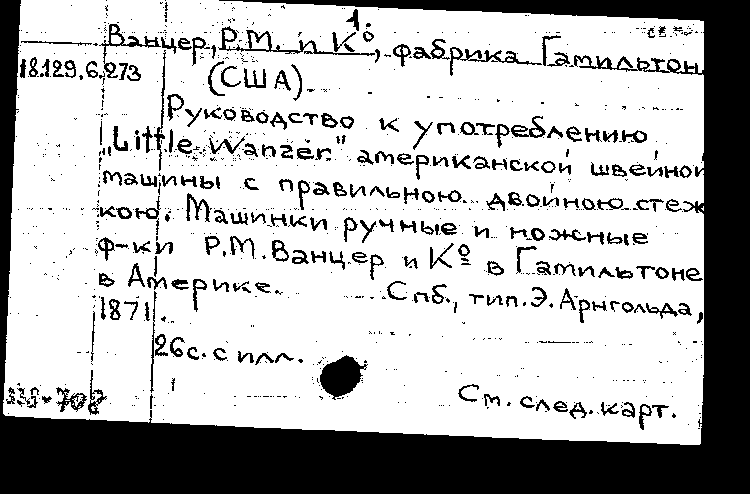 1.
Ванцер, Р.М. и Кº, фабрика Гамильтон
18.129.6.273 (США).
Руководство к употреблению
„Little Wanzer" американской швейной
машины с правильною двойною стеж
кою. Машинки ручные и ножные
ф-ки Р.М. Ванцер и Кº в Гамильтоне
в Америке. Спб., тип. Э. Арнгольда,
1871.
26с. с илл.
См. след. карт.